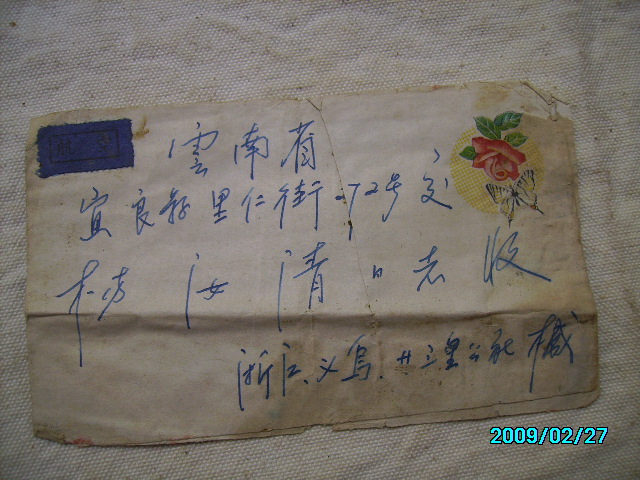 航空
雲南省
宜良縣里仁街72号交
杨汝清同志收
浙江、义乌、廿三里公社
2009/02/27